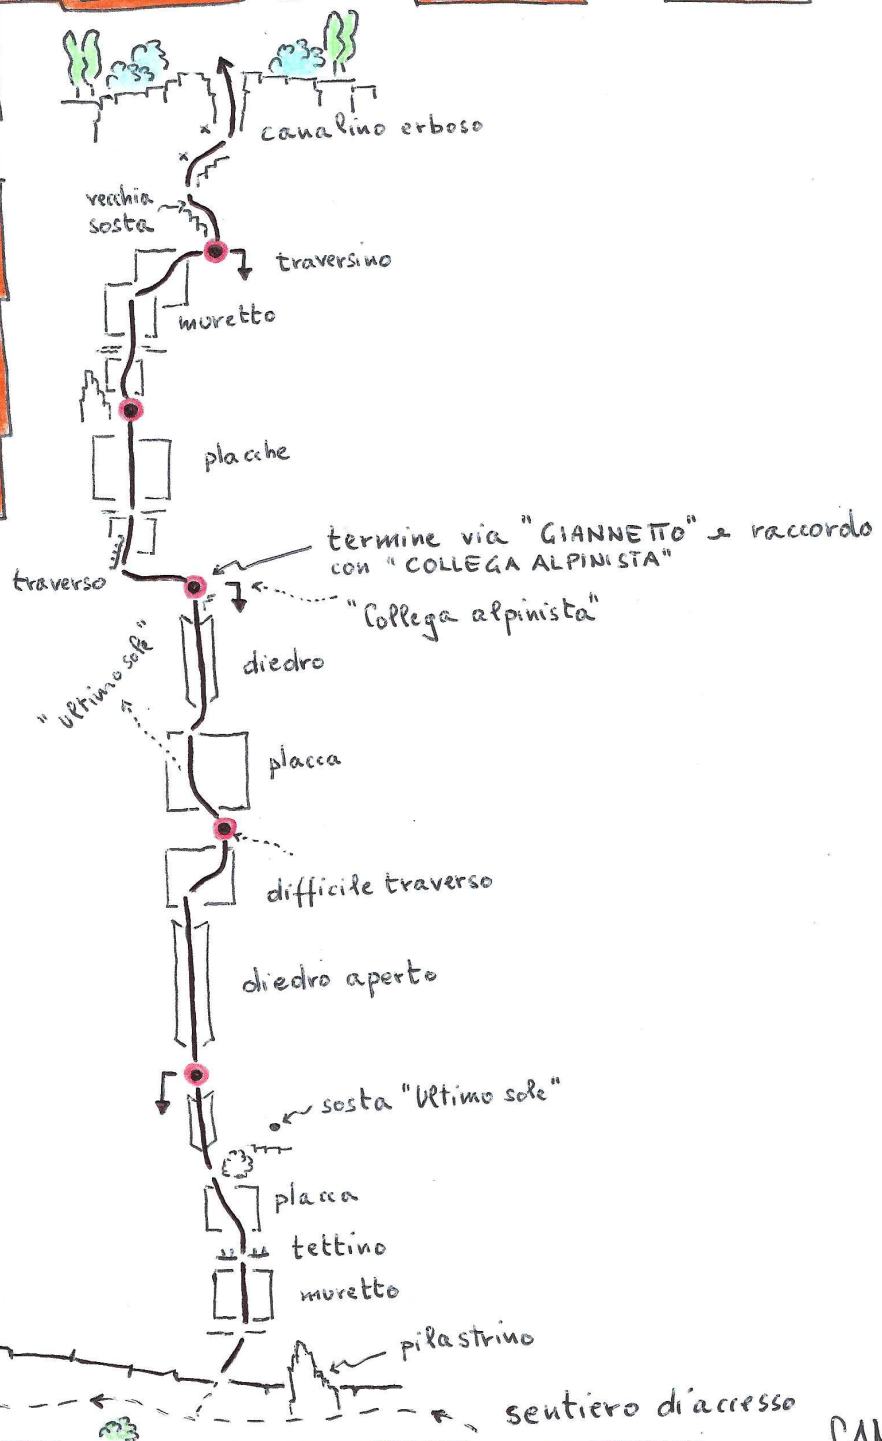 canalino erboso
vecchia
sosta
traversino
muretto
placche
termine via "GIANNETTO" e raccordo
con "COLLEGA ALPINISTA"
traverso
"Collega alpinista"
"Ultimo sole"
diedro
placca
difficile traverso
diedro aperto
sosta "Ultimo sole"
placca
tettino
muretto
pilastrino
sentiero d'accesso